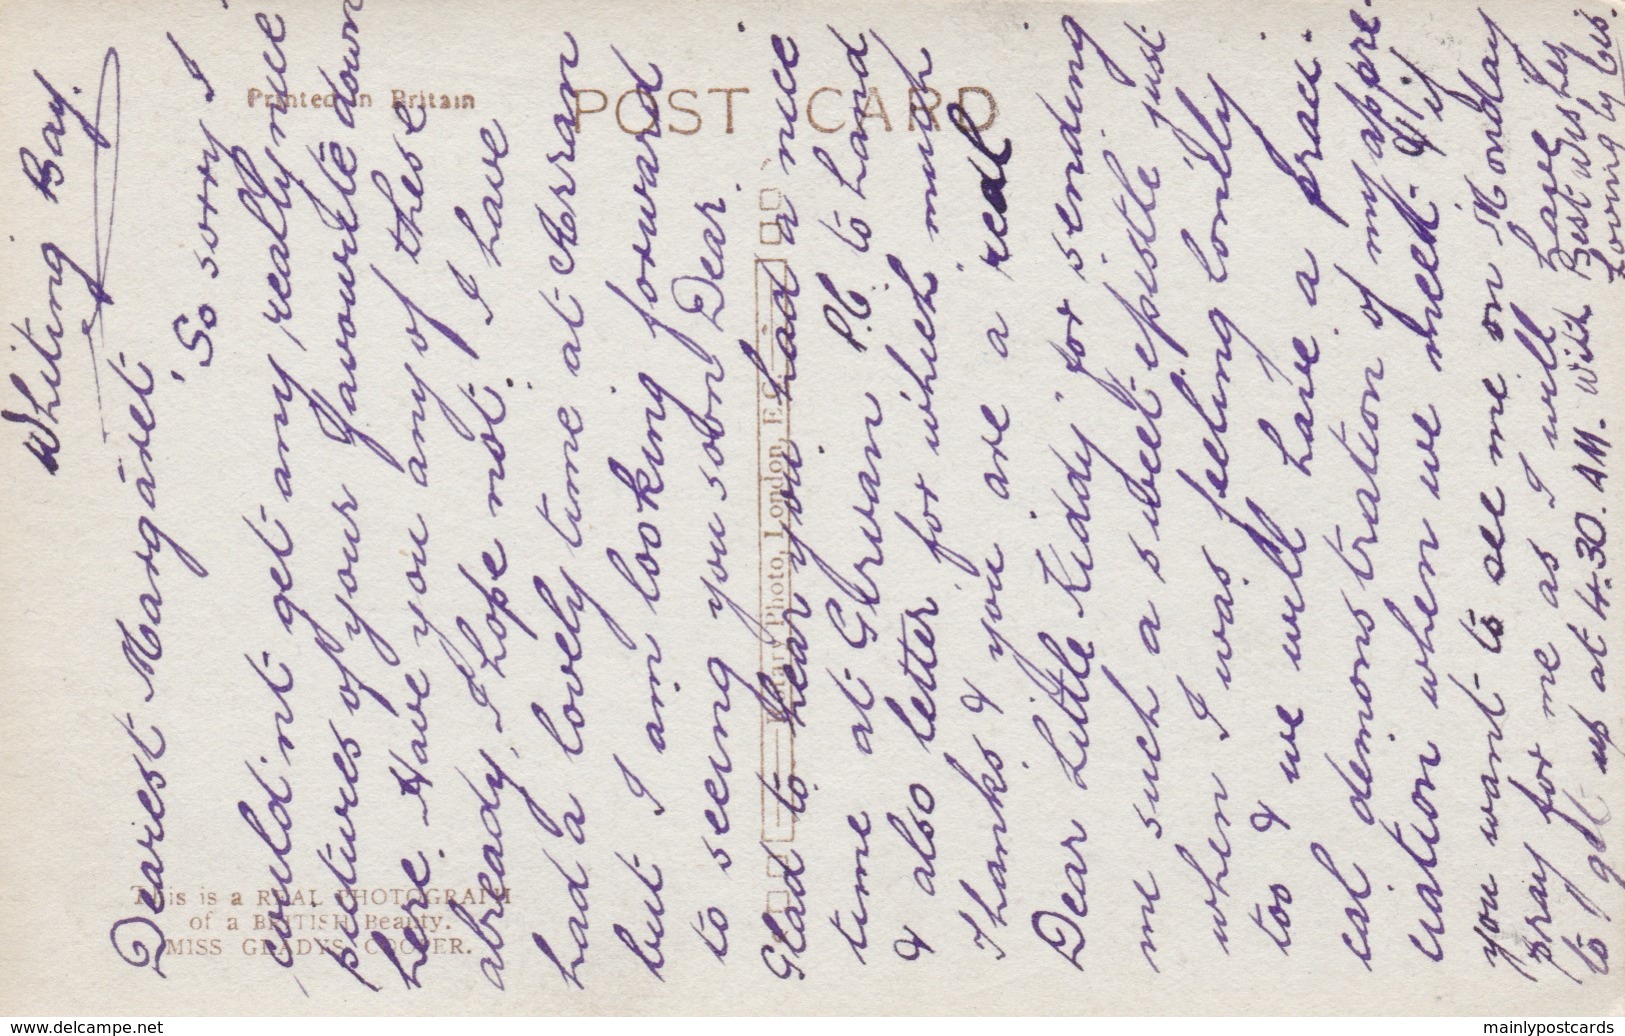 Whiting Bay.
Dearest Margaret,
So sorry I
couldint get any really nice
pictures of your favourite down
here. Have you any of these
already, I hope not. I have
had a lovely time at Arran
but I am looking forward
to seeing you soon Dear.
Glad to hear you had a nice
time at Girvan P.C to hand
& also letter for which much
Thanks & you are a real
Dear Little Kiddy for sending
me such a sweet epistle just
when I was feeling lonely
too & we will have a pract-
ical demonstration of my appre-
ciation when we meet. & if
you want to see me on Monday
pray for me as I will have
to get up at 4.30. AM. With Best Wishes
Loving ly
Printed in Britain
POST CARD
Rotary Photo, London, E.C.
This is a REAL PHOTOGRAPH
of a BRITISH Beauty.
MISS GLADYS COOPER.
www.delcampe.net
mainlypostcards